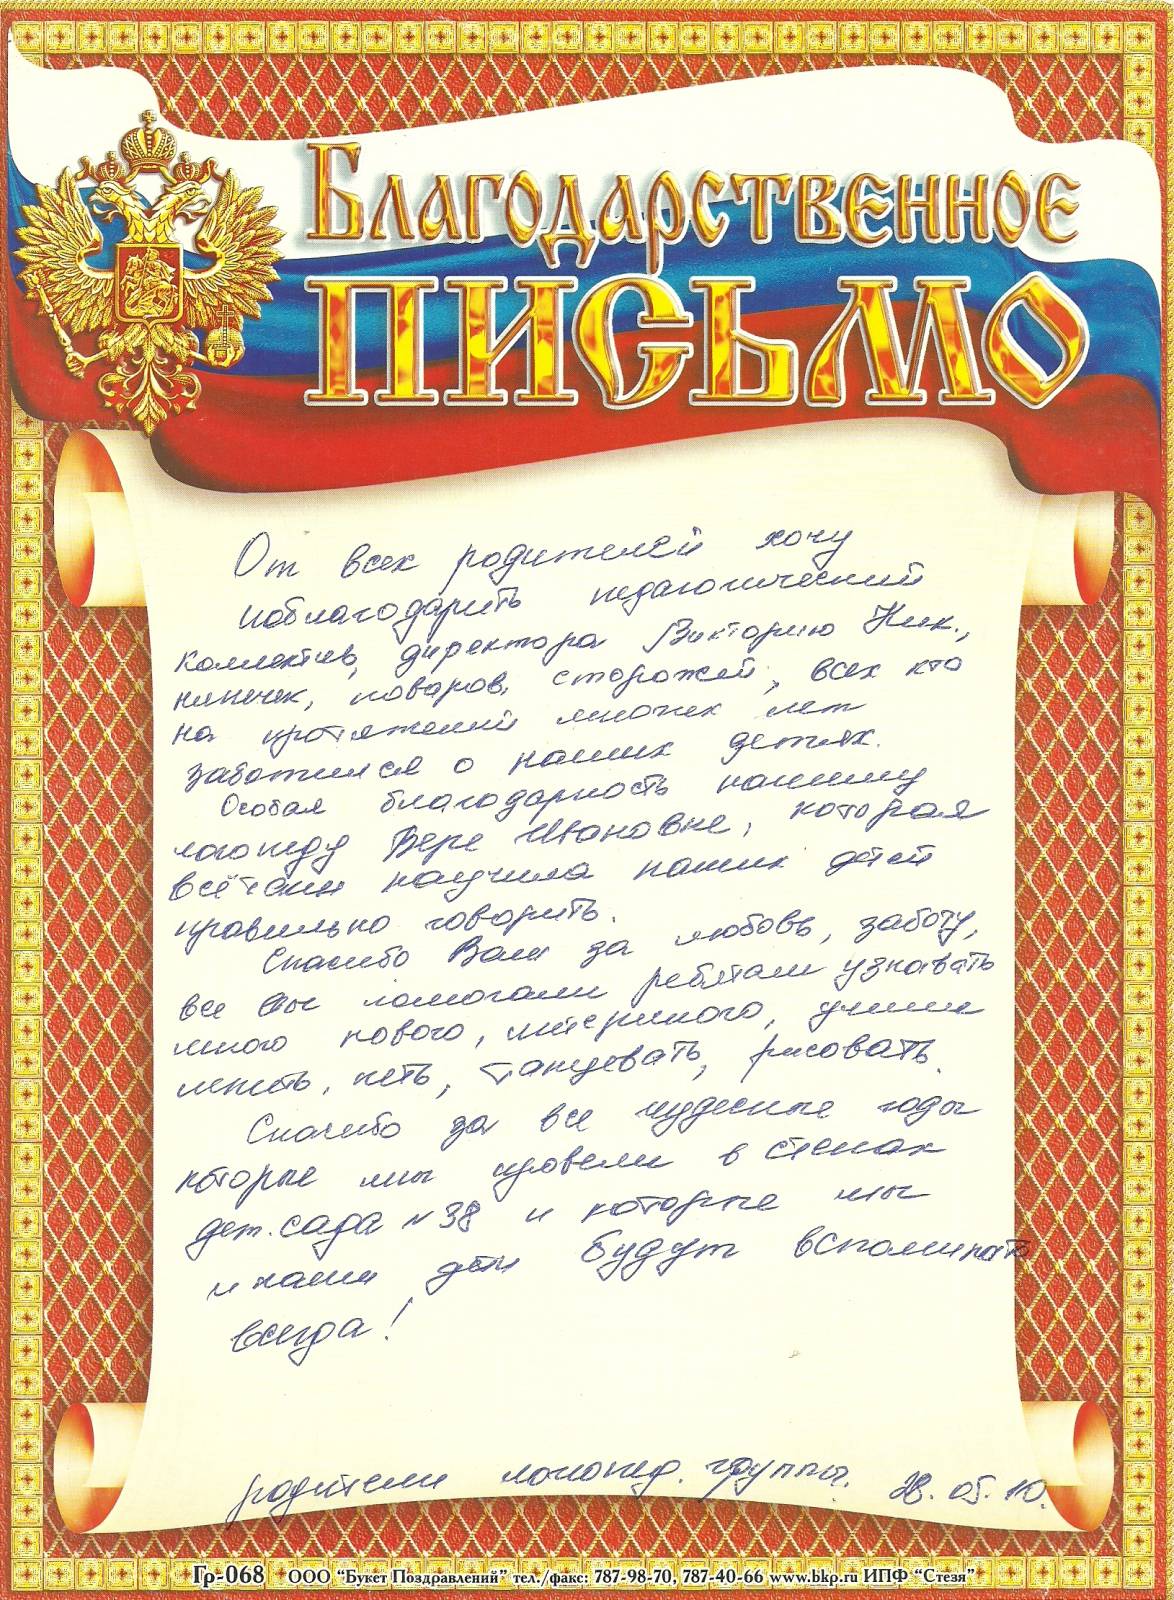 Благодарственное
ПИСЬМО
От всех родителей хочу
поблагодарить педагогический
коллектив, директора Викторию Ник.,
нянечек, поваров, сторожей, всех кто
на протяжении многих лет
заботился о наших детях.
Особая благодарность нашему
логопеду Вере Ивановне, которая
всё таки научила наших детей
правильно говорить.
Спасибо Вам за любовь, заботу,
все Вы помогали ребятам узнавать
много нового, интересного, учили
лепить, петь, танцевать, рисовать.
Спасибо за все чудесные годы
которые мы провели в стенах
дет. сада №38 и которые мы
и наши дети будут вспоминать
всегда!
родители логопед. группы. 28.05.10.
Гр-068 ООО "Букет Поздравлений" тел./факс: 787-98-70, 787-40-66 www.bkp.ru ИПФ "Стезя"